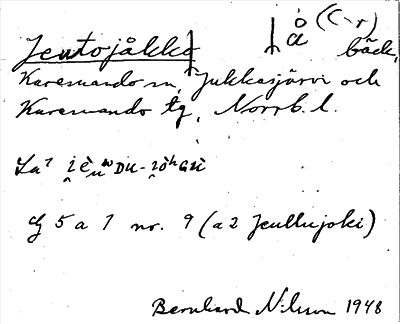 Jeutojåkkå å (C-r) bäck,
Karesuando sn, Jukkasjärvi och
Karesuando tg, Norrb. l.
La?
Cf 5 a 1 nr. 9 (a 2 Jeullujoki)
Bernhard Nilsson 1948